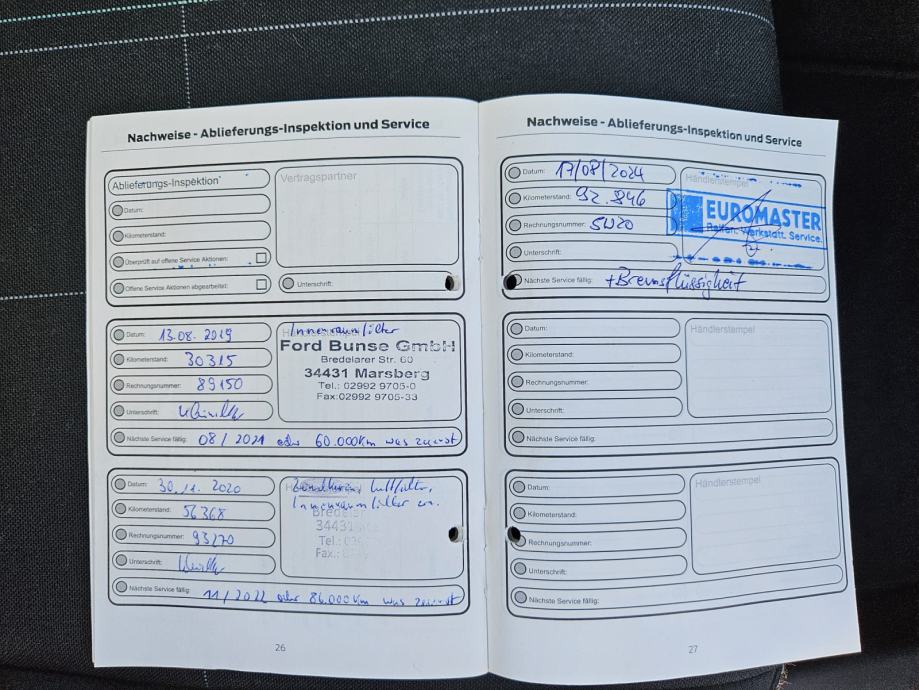 Nachweise - Ablieferungs-Inspektion und Service
Ablieferungs-Inspektion
Vertragspartner
Datum:
Kilometerstand:
Überprüft auf offene Service Aktionen:
Offene Service Aktionen abgearbeitet:
Unterschrift:
Datum: 13.08.2019
Kilometerstand: 30315
Rechnungsnummer: 89150
Unterschrift:
Innenraumfilter
Ford Bunse GmbH
Bredelarer Str. 60
34431 Marsberg
Tel.: 02992 9705-0
Fax:02992 9705-33
Nächste Service fällig: 08/2021 oder 60.000km was zuerst
Datum: 30.11.2020
Kilometerstand: 56368
Rechnungsnummer: 93270
Unterschrift:
Luftfilter,
Innenraumfilter
34431
Tel.:
Fax.:
Nächste Service fällig: 11/2022 oder 86.000km was zuerst
26
Nachweise - Ablieferungs-Inspektion und Service
Datum: 17/08/2024
Kilometerstand: 92.846
Rechnungsnummer: 5W20
Unterschrift:
Händlerstempel
EUROMASTER
Reifen. Werkstatt. Service.
Nächste Service fällig: +Bremsflüssigkeit
Datum:
Kilometerstand:
Rechnungsnummer:
Unterschrift:
Händlerstempel
Nächste Service fällig:
Datum:
Kilometerstand:
Rechnungsnummer:
Unterschrift:
Händlerstempel
Nächste Service fällig:
27